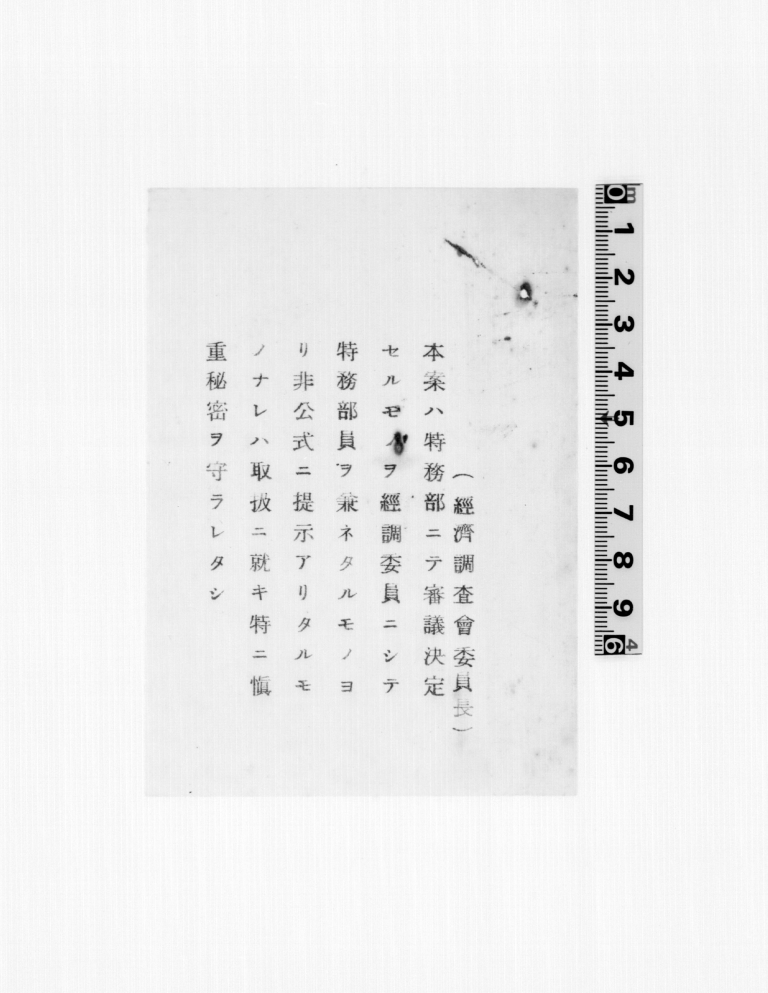 （經濟調査會委員長）
本案ハ特務部ニテ審議決定
セルモノヲ經調委員ニシテ
特務部員ヲ兼ネタルモノヨ
リ非公式ニ提示アリタルモ
ノナレハ取扱ニ就キ特ニ愼
重秘密ヲ守ラレタシ
0 1 2 3 4 5 6 7 8 9